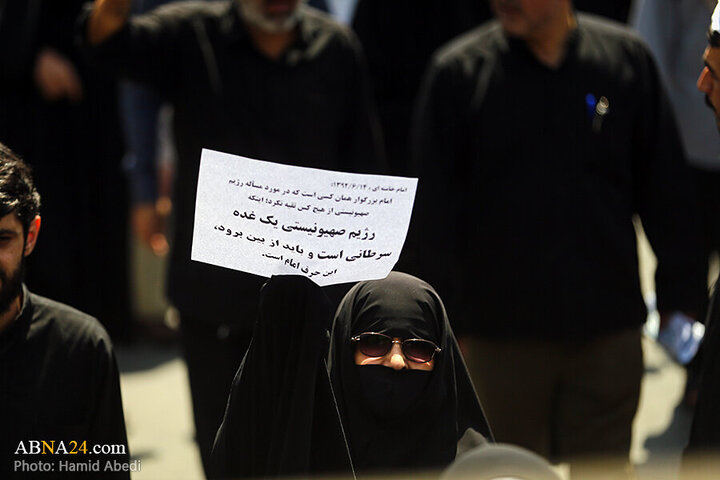 امام خامنه ای ، ۱۳۹۲/۶/۱۴:
امام بزرگوار همان کسی است که در مورد مسأله رژیم
صهیونیستی از هیچ کس تقیه نکرد؛ اینکه
رژیم صهیونیستی یک غده
سرطانی است و باید از بین برود،
این حرف امام است.
ABNA24.com
Photo: Hamid Abedi